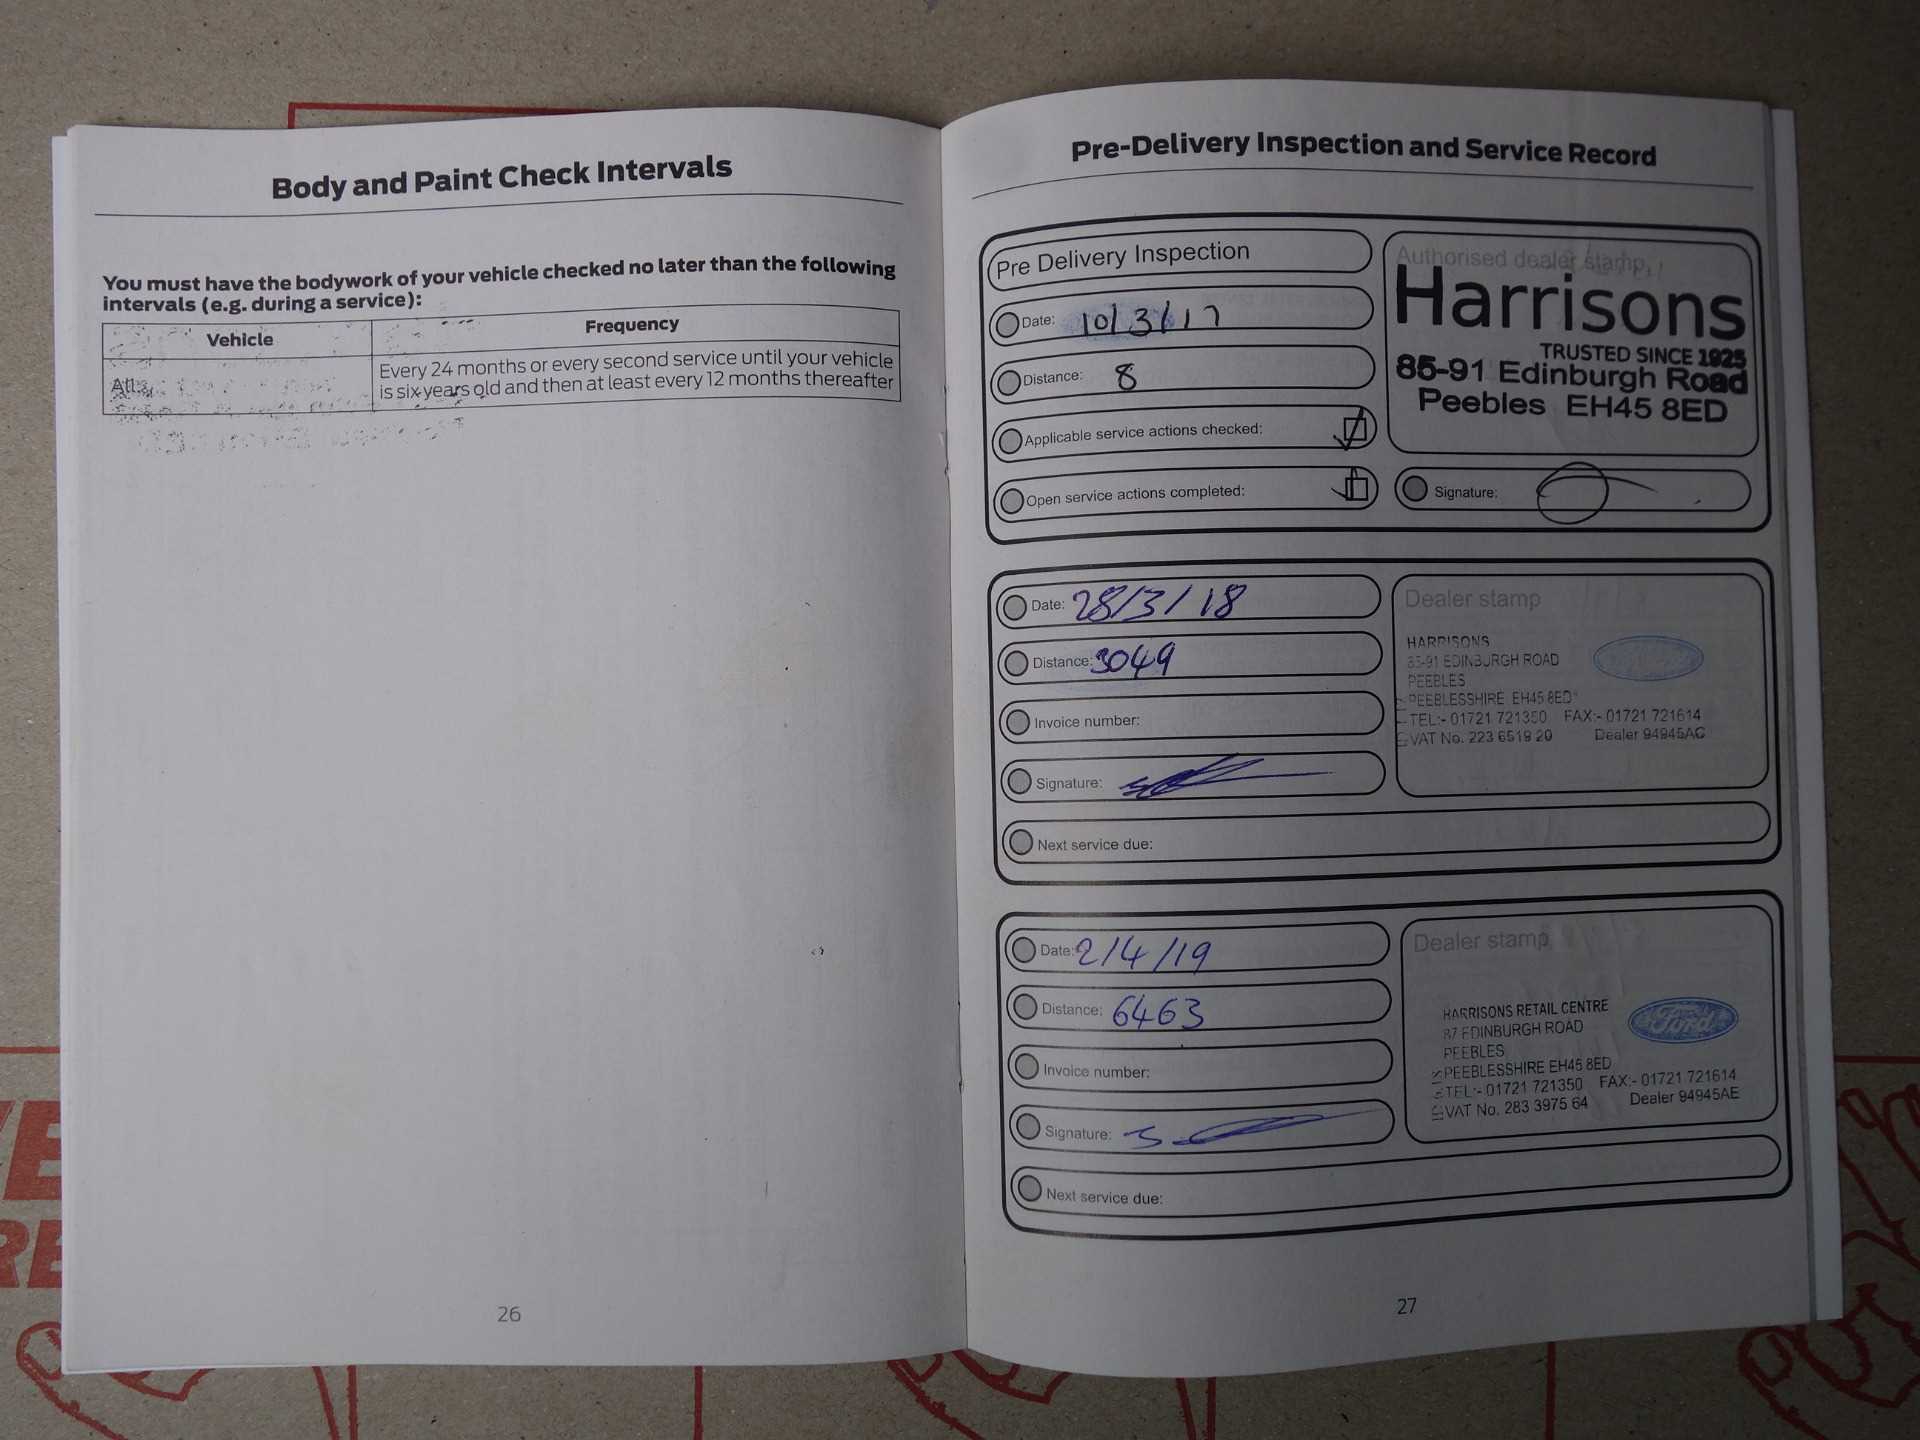 Body and Paint Check Intervals
You must have the bodywork of your vehicle checked no later than the following
intervals (e.g. during a service):
Vehicle
Frequency
All
Every 24 months or every second service until your vehicle
is six years old and then at least every 12 months thereafter
26
Pre-Delivery Inspection and Service Record
Pre Delivery Inspection
Date: 10/3/17
Distance: 8
Applicable service actions checked:
Open service actions completed:
Authorised dealer stamp
Harrisons
TRUSTED SINCE 1925
85-91 Edinburgh Road
Peebles EH45 8ED
Signature:
Date: 28/3/18
Distance: 3049
Invoice number:
Signature:
Next service due:
Dealer stamp
HARRISONS
85-91 EDINBURGH ROAD
PEEBLES
PEEBLESSHIRE EH45 8ED
TEL:- 01721 721350 FAX:- 01721 721614
VAT No. 223 6519 20 Dealer 94945AC
Date: 2/4/19
Distance: 6463
Invoice number:
Signature:
Next service due:
Dealer stamp
HARRISONS RETAIL CENTRE
87 EDINBURGH ROAD
PEEBLES
PEEBLESSHIRE EH45 8ED
TEL:- 01721 721350 FAX:- 01721 721614
VAT No. 283 3975 64 Dealer 94945AE
Ford
27